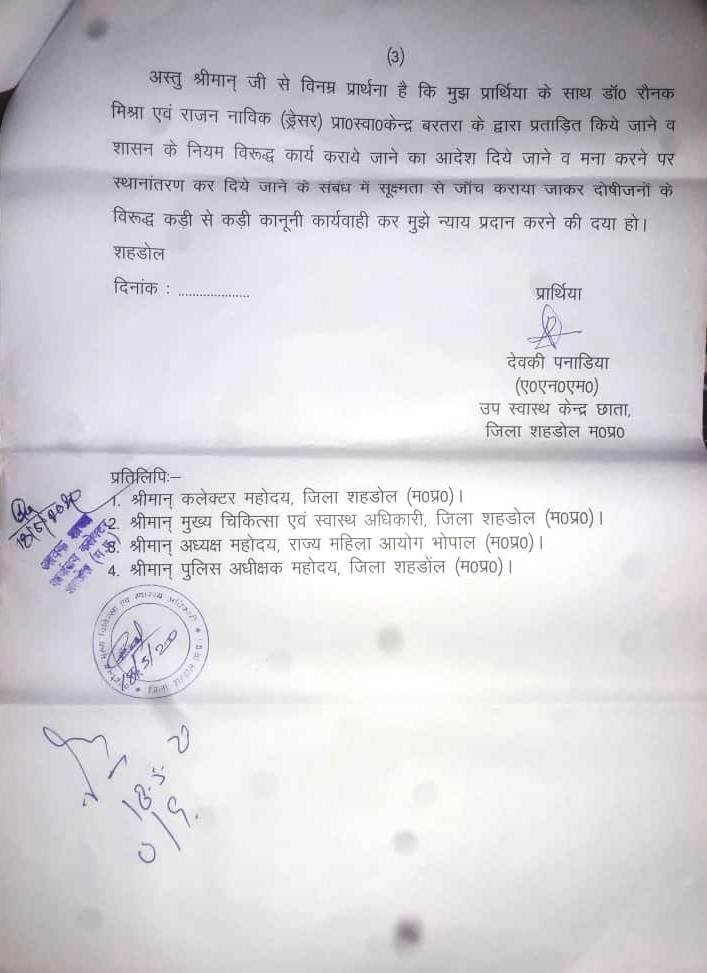 (3)
अस्तु श्रीमान् जी से विनम्र प्रार्थना है कि मुझ प्रार्थिया के साथ डॉ0 रौनक
मिश्रा एवं राजन नाविक (ड्रेसर) प्रा0स्वा0केन्द्र बरतरा के द्वारा प्रताड़ित किये जाने व
शासन के नियम विरूद्ध कार्य कराये जाने का आदेश दिये जाने व मना करने पर
स्थानांतरण कर दिये जाने के संबंध में सूक्ष्मता से जॉच कराया जाकर दोषीजनों के
विरूद्ध कड़ी से कड़ी कानूनी कार्यवाही कर मुझे न्याय प्रदान करने की दया हो।
शहडोल
दिनांक : ....................
प्रार्थिया
देवकी पनाडिया
(ए0एन0एम0)
उप स्वास्थ केन्द्र छाता,
जिला शहडोल म0प्र0
प्रतिलिपिः—
1. श्रीमान् कलेक्टर महोदय, जिला शहडोल (म0प्र0)।
2. श्रीमान् मुख्य चिकित्सा एवं स्वास्थ अधिकारी, जिला शहडोल (म0प्र0)।
3. श्रीमान् अध्यक्ष महोदय, राज्य महिला आयोग भोपाल (म0प्र0)।
4. श्रीमान् पुलिस अधीक्षक महोदय, जिला शहडोंल (म0प्र0)।
18/5/2020
18/5/20
18.5